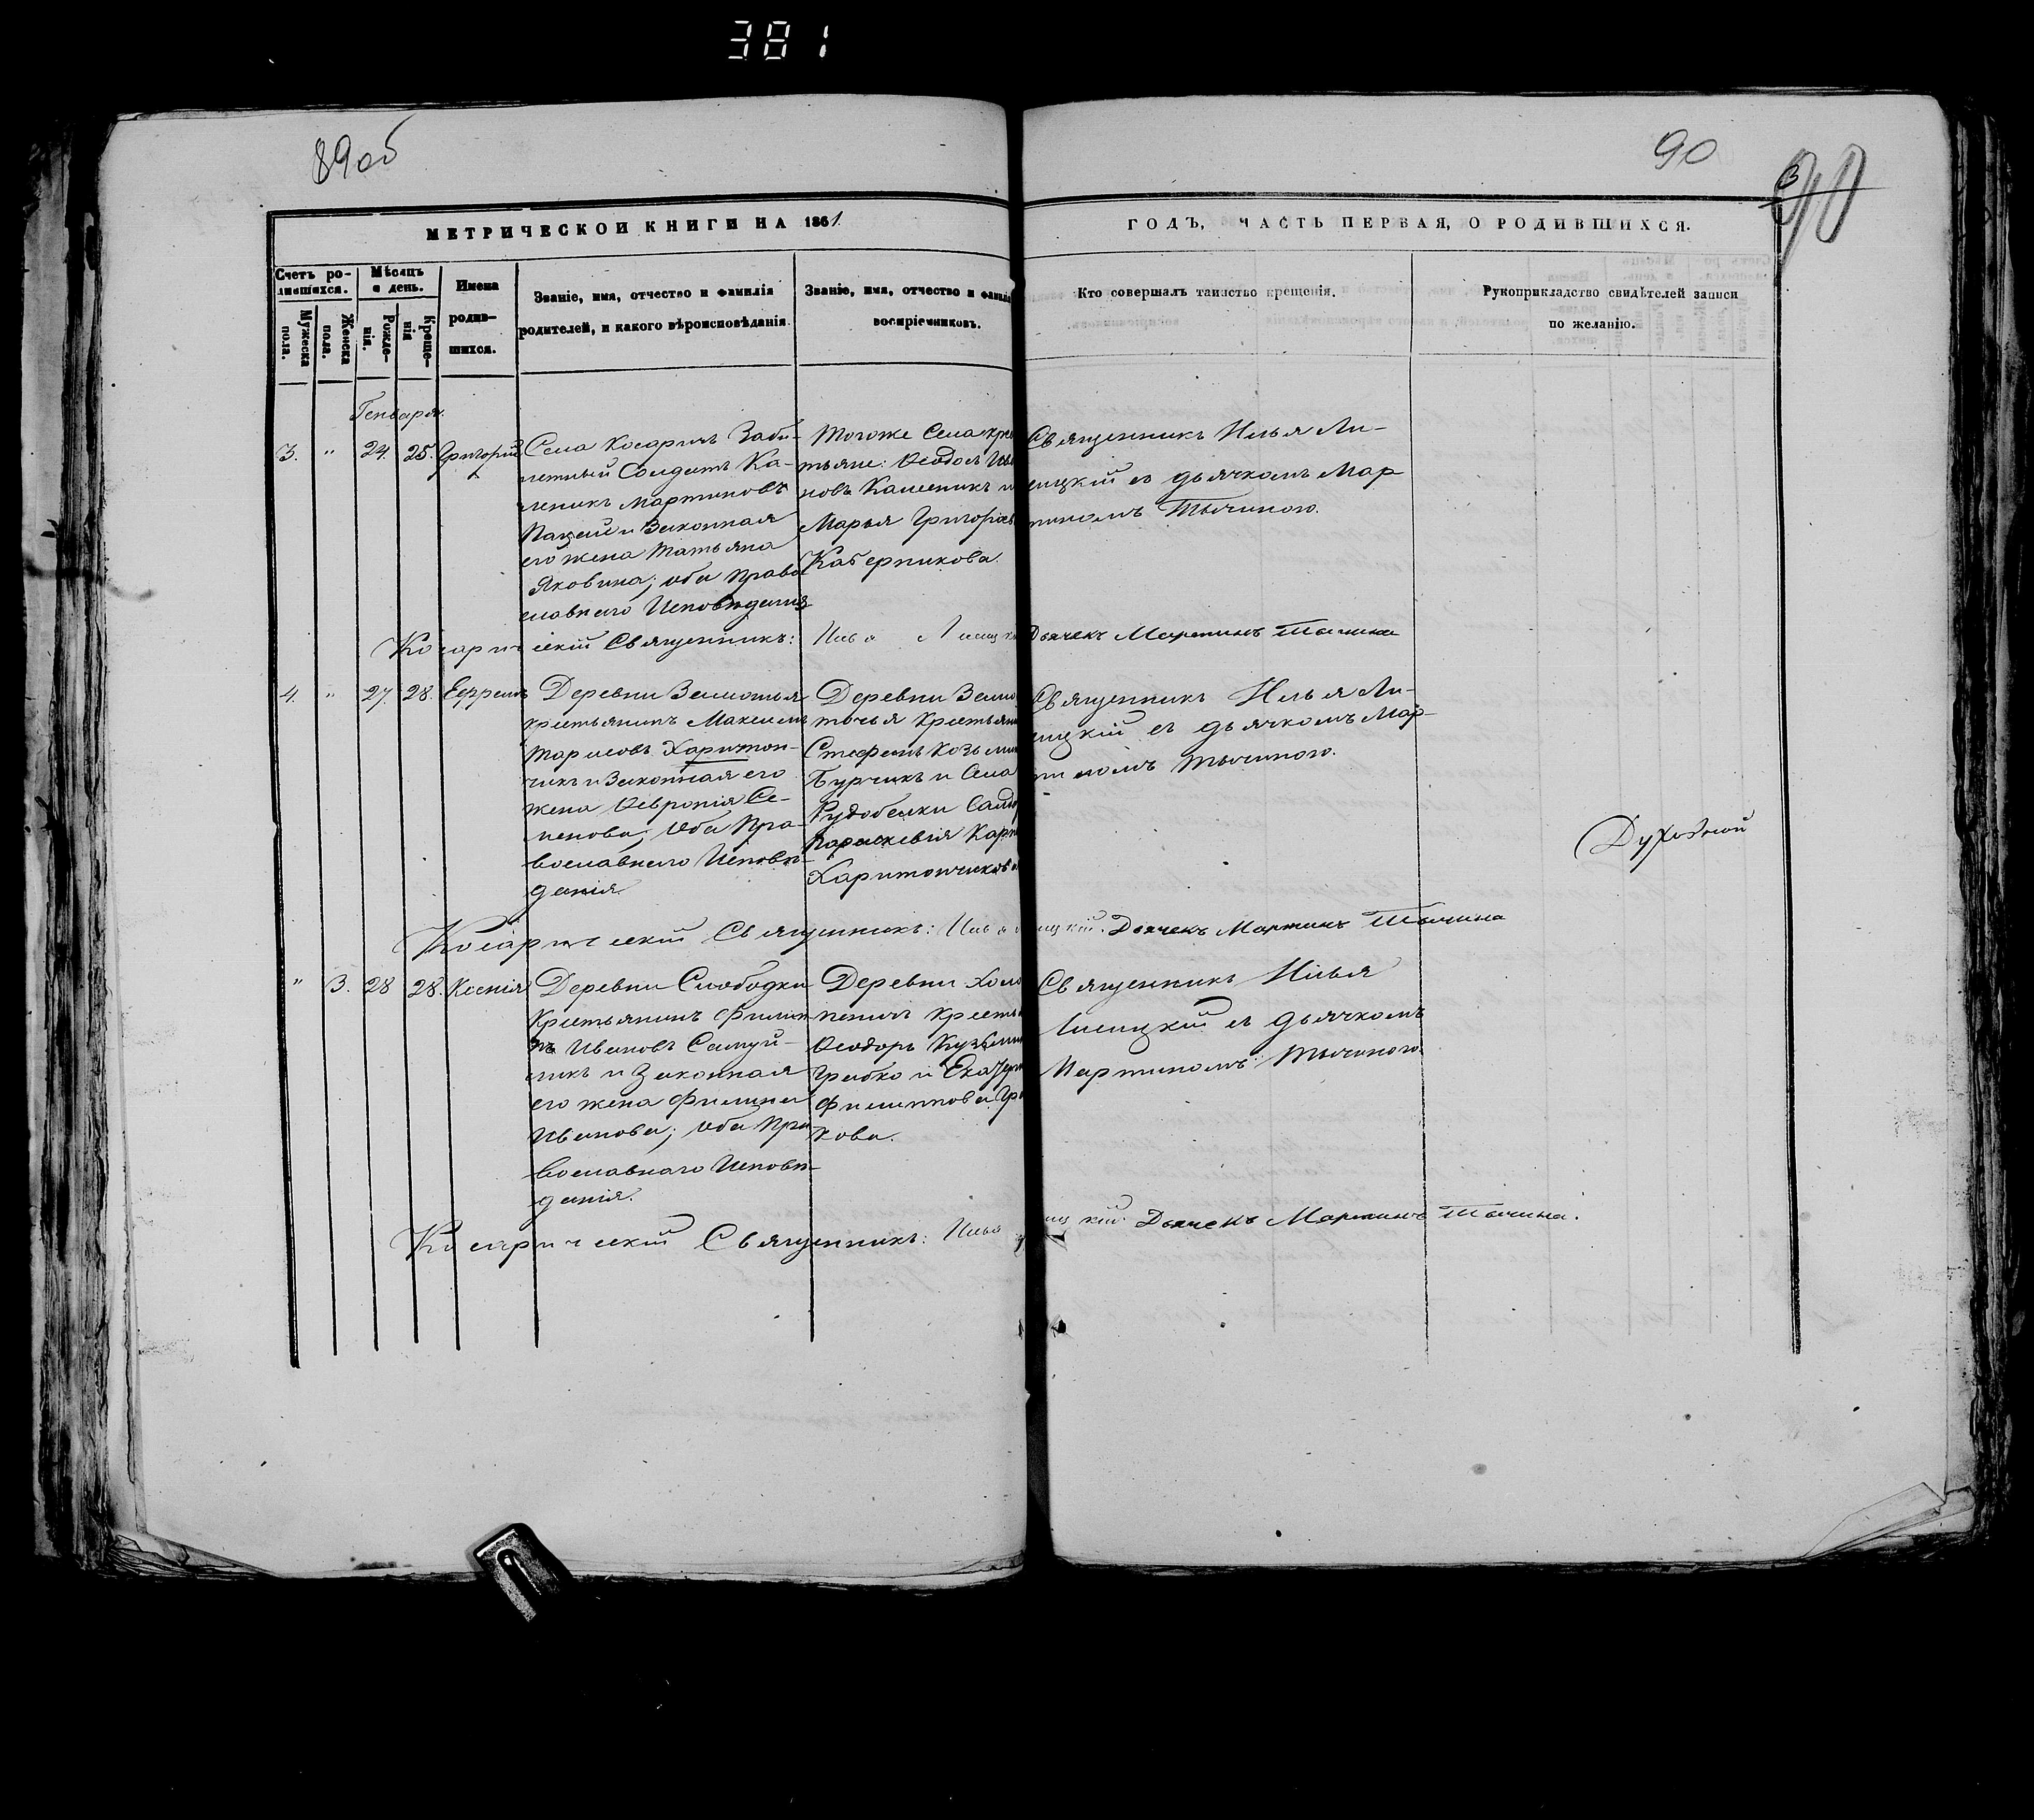 381
89об
90
МЕТРИЧЕСКОЙ КНИГИ НА 1861
ГОДЪ, ЧАСТЬ ПЕРВАЯ, О РОДИВШИХСЯ.
Счетъ ро-
дившихся.
Мѣсяцъ
и день.
Имена
родив-
шихся.
Званіе, имя, отчество и фамилія
родителей, и какого вѣроисповѣданія
Званіе, имя, отчество и фамилі
воспріемниковъ.
Кто совершалъ таинство крещенія.
Рукоприкладство свидѣтелей записи
по желанію.
Мужеска
пола.
Женска
пола.
Рожде-
нія.
Креще-
нія
Генваря.
3. " 24. 25. Григорій
Села Косаричъ Заби-
летный Солдатъ Ка-
леникъ Мартиновъ
и Законная
его жена Татьяна
Яковина; оба Право
славнаго Исповѣданія
Тогоже Села кре
тьяне: Ѳеодоръ Ива
новъ Калееникъ и
Марья Григорьев
Каберникова.
Священникъ Илья Ли-
сицкій съ дьячкомъ Мар
тиномъ Тычиною.
Косаричскій Священникъ: Илья Лисицкі Дьячекъ Мартинъ Тычина
4. " 27. 28. Ефремъ
Деревни Замостья
крестьянинъ Максимъ
Тарасовъ Харитон-
чикъ и Законная его
жена Ѳевронія Се-
менова; оба Пра-
вославнаго Исповѣ-
данія.
Деревни Замо
стья Крестьян
Стефанъ Козьмин
Бурчикъ и Села
Рудобелки
Параскевія Карп
Харитончикова
Священникъ Илья Ли-
сицкій съ дьячкомъ Мар-
тиномъ Тычиною.
Духовной
Косаричскій Священникъ: Илья Лисицкій. Дьячекъ Мартинъ Тычина
" 3. 28 28. Ксенія
Деревни Слободки
Крестьянинъ Филип
пъ Ивановъ Самуй-
ликъ и Законная
его жена Филиция
Иванова; оба Пра
вославнаго Исповѣ-
данія.
Деревни Холо
пеничъ Кресть
Ѳеодоръ Кузьмин
Грибко и Екатери
Филиппова Гри
кова.
Священникъ Илья
Лисицкій съ дьячкомъ
Мартиномъ Тычиною.
Косаричскій Священникъ: Илья Лисицкій Дьячекъ Мартинъ Тычина.